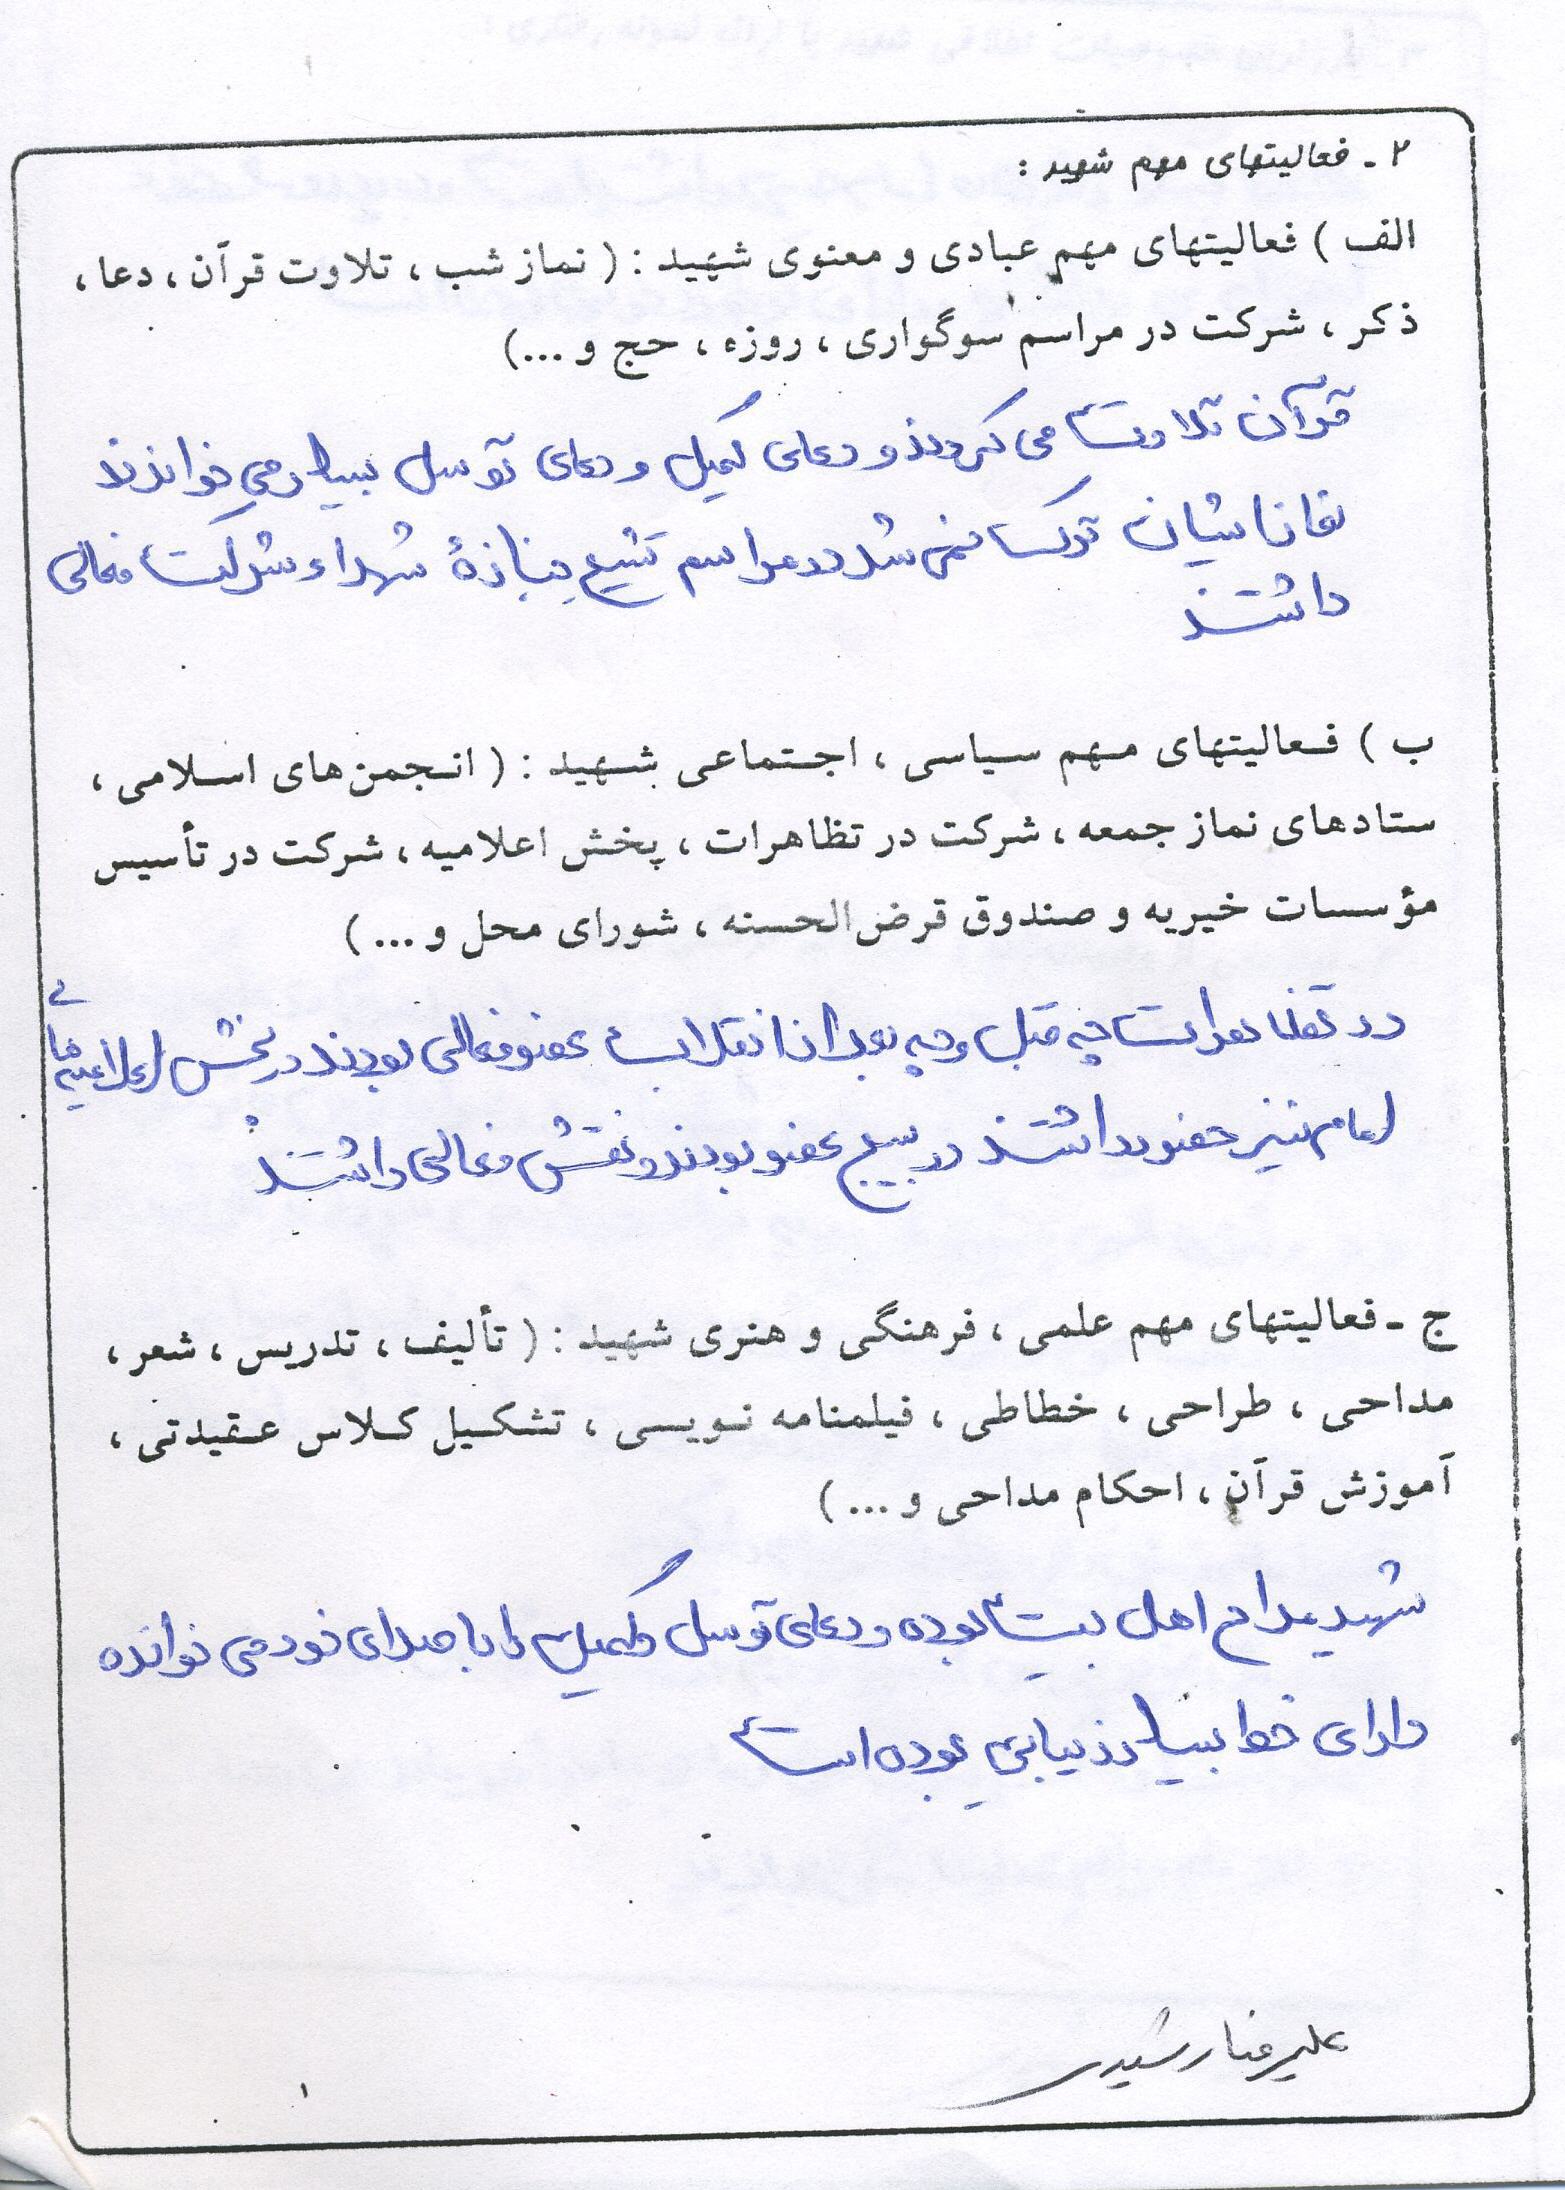 ۲ ـ فعالیتهای مهم شهید :
الف ) فعالیتهای مهم عبادی و معنوی شهید : ( نماز شب ، تلاوت قرآن ، دعا ،
ذکر ، شرکت در مراسم سوگواری ، روزه ، حج و ...)
قرآن تلاوت می کردند و دعای کمیل و دعای توسل بسیار می خواندند
نمازایشان ترک نمی شد در مراسم تشیع جنازهٔ شهداء شرکت فعالی
داشتند
ب ) فعالیتهای مهم سیاسی ، اجتماعی شهید : ( انجمن‌های اسلامی ،
ستادهای نماز جمعه ، شرکت در تظاهرات ، پخش اعلامیه ، شرکت در تأسیس
مؤسسات خیریه و صندوق قرض‌الحسنه ، شورای محل و ... )
در تظاهرات چه قبل و چه بعد از انقلاب عضو فعالی بودند در پخش اعلامیه های
امام نیز حضور داشتند در بسیج عضو بودند و نقش فعالی داشتند
ج ـ فعالیتهای مهم علمی ، فرهنگی و هنری شهید : ( تألیف ، تدریس ، شعر ،
مداحی ، طراحی ، خطاطی ، فیلمنامه نویسی ، تشکیل کلاس عقیدتی ،
آموزش قرآن ، احکام مداحی و ... )
شهید مداح اهل بیت بوده و دعای توسل و کمیل را با صدای خود می خوانده
دارای خط بسیار زیبایی بوده است
علیرضا رشیدی